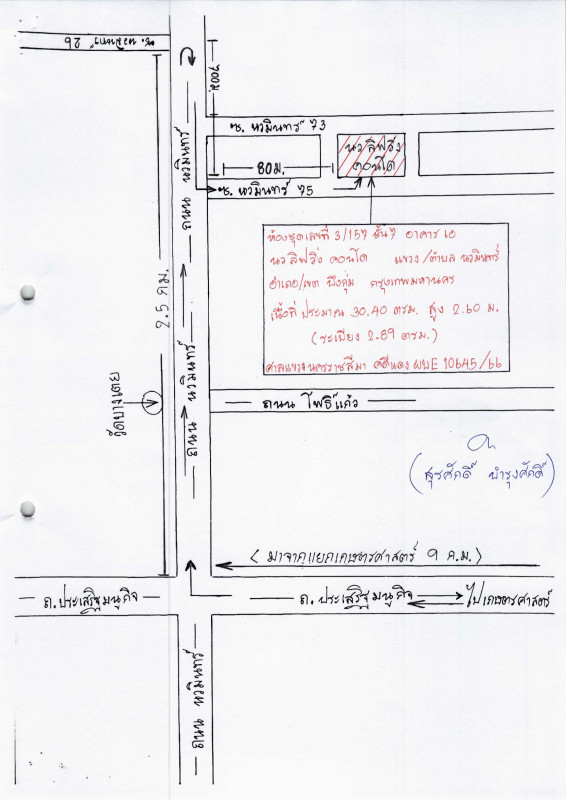 ซ. นวมินทร์ 26
700ม.
ซ. นวมินทร์ 73
นวลิฟวิ่ง
คอนโด
80ม.
ซ. นวมินทร์ 75
ถนน นวมินทร์
2.5 กม.
ห้องชุดเลขที่ 3/157 ชั้น7 อาคาร เอ
นวลิฟวิ่ง คอนโด แขวง/ตำบล นวมินทร์
อำเภอ/เขต บึงกุ่ม กรุงเทพมหานคร
เนื้อที่ ประมาณ 30.40 ตรม. สูง 2.60 ม.
(ระเบียง 2.89 ตรม.)
ศาลแขวงนครราชสีมา คดีแดง ผบE 10645/66
ถนน นวมินทร์
วัดบางเตย
ถนน โพธิ์แก้ว
(สุรศักดิ์ บำรุงศักดิ์)
(มาจากแยกเกษตรศาสตร์ 9 ก.ม.)
ถ. ประเสริฐมนูกิจ
ถ. ประเสริฐมนูกิจ
ไปเกษตรศาสตร์
ถนน นวมินทร์